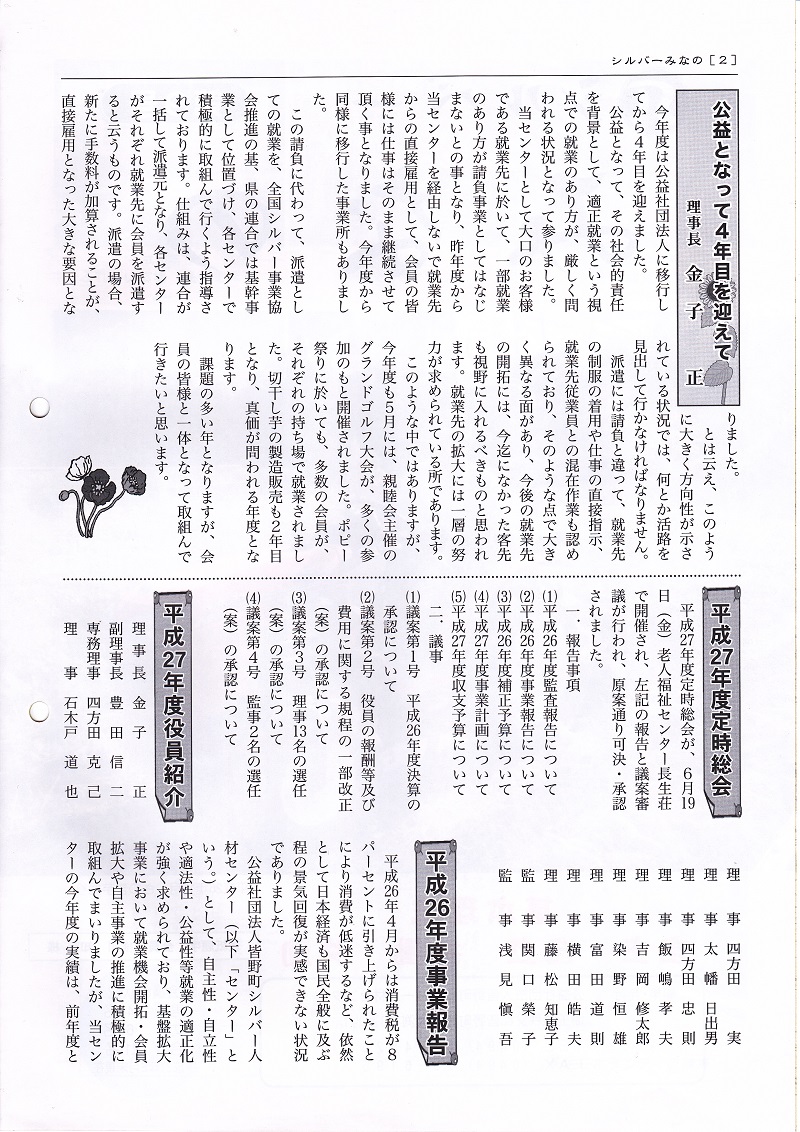 シルバーみなの［2］
公益となって４年目を迎えて
理事長　金子　正
　今年度は公益社団法人に移行し
てから４年目を迎えました。
　公益となって、その社会的責任
を背景として、適正就業という視
点での就業のあり方が、厳しく問
われる状況となって参りました。
　当センターとして大口のお客様
である就業先に於いて、一部就業
のあり方が請負事業としてはなじ
まないとの事となり、昨年度から
当センターを経由しないで就業先
からの直接雇用として、会員の皆
様には仕事はそのまま継続させて
頂く事となりました。今年度から
同様に移行した事業所もありまし
た。
　この請負に代わって、派遣とし
ての就業を、全国シルバー事業協
会推進の基、県の連合では基幹事
業として位置づけ、各センターで
積極的に取組んで行くよう指導さ
れております。仕組みは、連合が
一括して派遣元となり、各センター
がそれぞれ就業先に会員を派遣す
ると云うものです。派遣の場合、
新たに手数料が加算されることが、
直接雇用となった大きな要因とな
りました。
　とは云え、このよう
に大きく方向性が示さ
れている状況では、何とか活路を
見出して行かなければなりません。
　派遣には請負と違って、就業先
の制服の着用や仕事の直接指示、
就業先従業員との混在作業も認め
られており、そのような点で大き
く異なる面があり、今後の就業先
の開拓には、今迄になかった客先
も視野に入れるべきものと思われ
ます。就業先の拡大には一層の努
力が求められている所であります。
　このような中ではありますが、
今年度も５月には、親睦会主催の
グランドゴルフ大会が、多くの参
加のもと開催されました。ポピー
祭りに於いても、多数の会員が、
それぞれの持ち場で就業されまし
た。切干し芋の製造販売も２年目
となり、真価が問われる年度とな
ります。
　課題の多い年となりますが、会
員の皆様と一体となって取組んで
行きたいと思います。
平成27年度定時総会
　平成27年度定時総会が、６月19
日（金）老人福祉センター長生荘
で開催され、左記の報告と議案審
議が行われ、原案通り可決・承認
されました。
一、報告事項
⑴平成26年度監査報告について
⑵平成26年度事業報告について
⑶平成26年度補正予算について
⑷平成27年度事業計画について
⑸平成27年度収支予算について
二、議事
⑴議案第１号　平成26年度決算の
承認について
⑵議案第２号　役員の報酬等及び
費用に関する規程の一部改正
（案）の承認について
⑶議案第３号　理事13名の選任
（案）の承認について
⑷議案第４号　監事２名の選任
（案）の承認について
平成27年度役員紹介
理事長　金子　正
副理事長　豊田信二
専務理事　四方田克己
理事　石木戸道也
理事　四方田　実
理事　太幡日出男
理事　四方田忠則
理事　飯嶋孝夫
理事　吉岡修太郎
理事　染野恒雄
理事　富田道則
理事　横田皓夫
理事　藤松知恵子
監事　関口榮子
監事　浅見愼吾
平成26年度事業報告
　平成26年４月からは消費税が８
パーセントに引き上げられたこと
により消費が低迷するなど、依然
として日本経済も国民全般に及ぶ
程の景気回復が実感できない状況
でありました。
　公益社団法人皆野町シルバー人
材センター（以下「センター」と
いう。）として、自主性・自立性
や適法性・公益性等就業の適正化
が強く求められており、基盤拡大
事業において就業機会開拓・会員
拡大や自主事業の推進に積極的に
取組んでまいりましたが、当セン
ターの今年度の実績は、前年度と